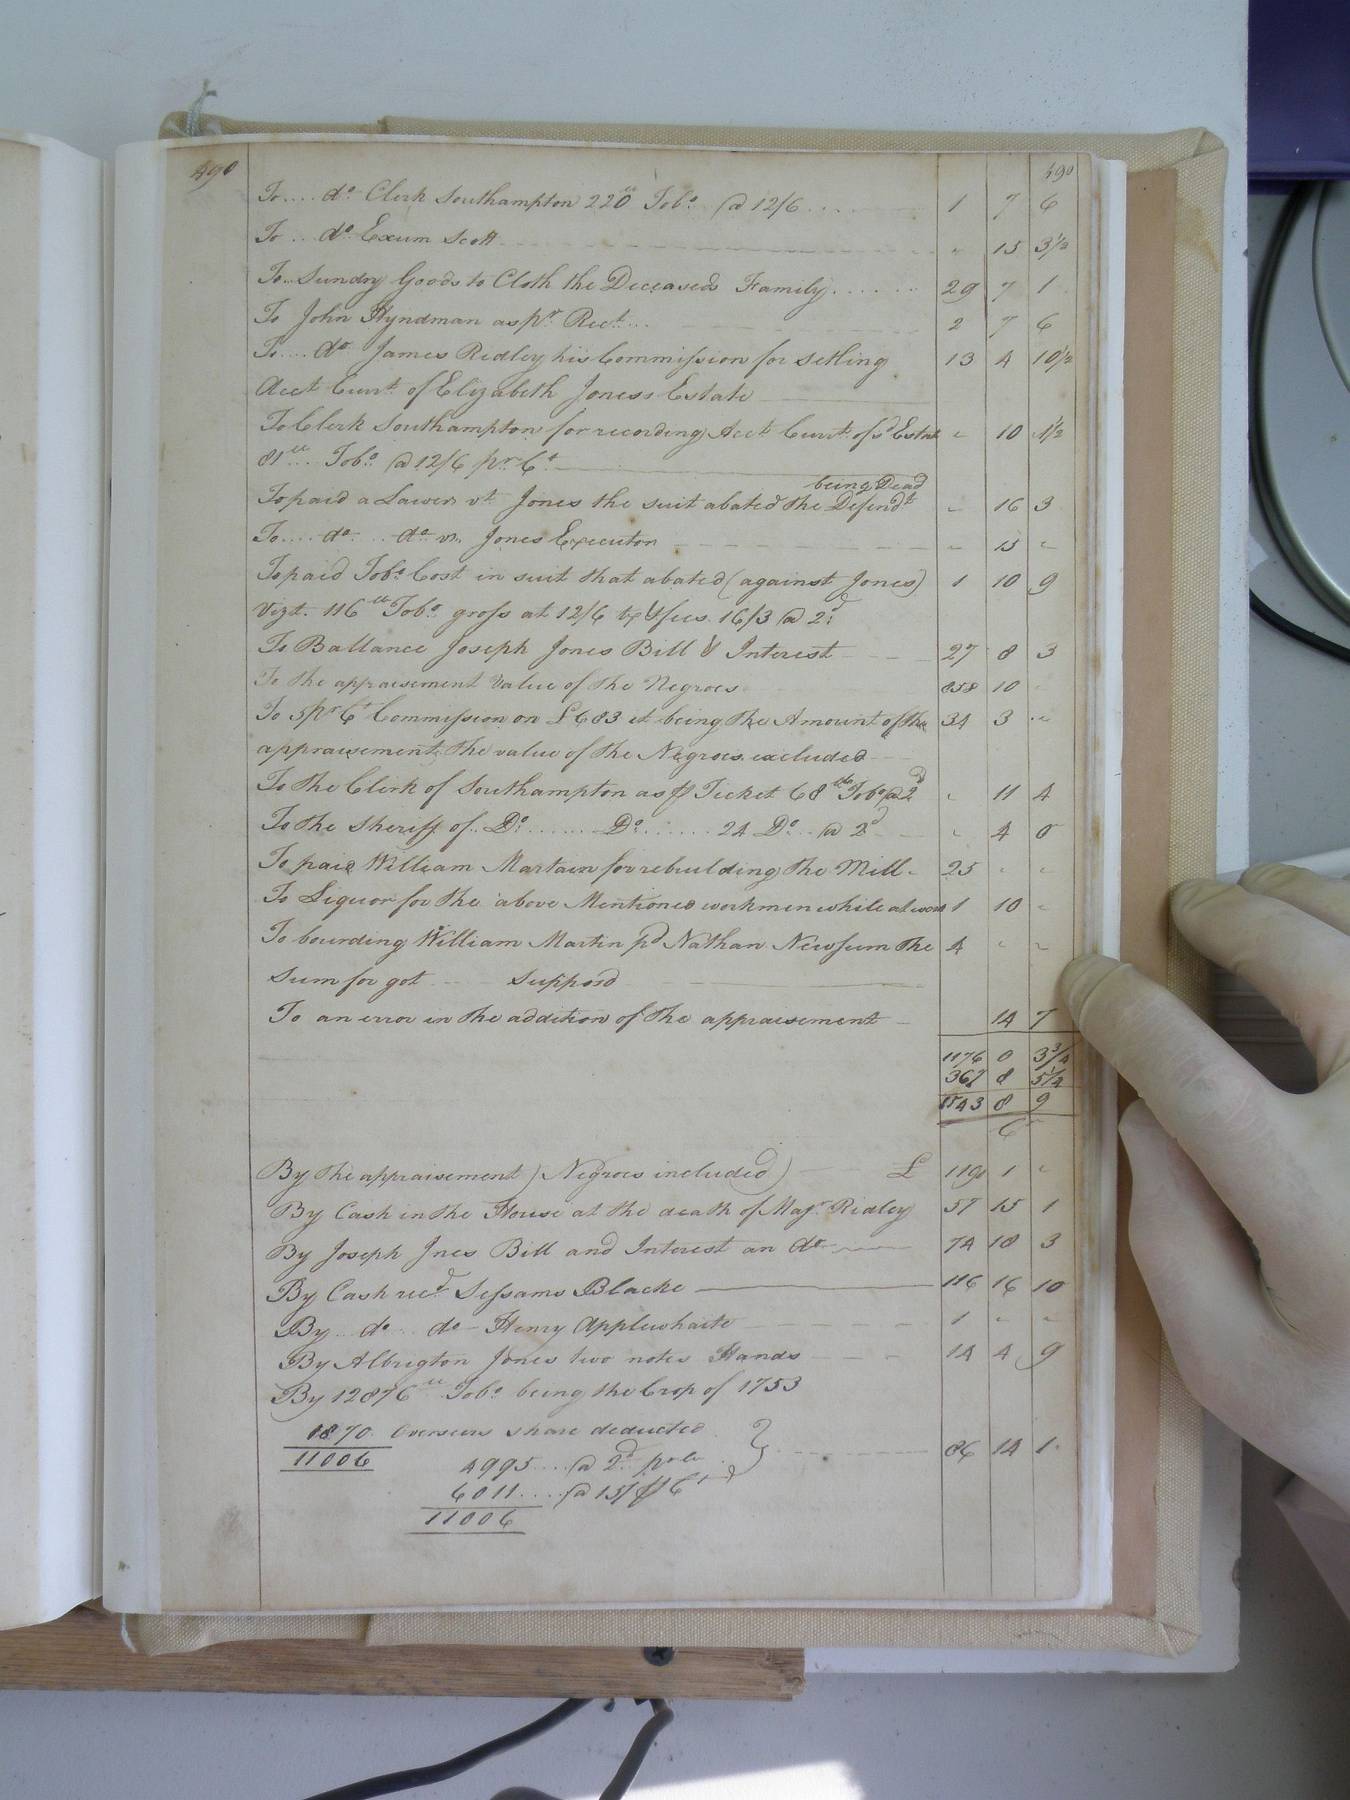 490 490
To .... do. Clerk Southampton 220 lb Tobo. @ 12/6 .... 1 7 6
To ... do. Exum Scott " 15 3½
To .. Sundry Goods to Cloth the Deceaseds Family ...... 29 7 1
To John Hyndman as pr. Rect. ... 2 7 6
To .... do. James Ridley his Commission for setling 13 4 10½
Acct Curnt. of Elizabeth Joness Estate
To Clerk Southampton for recording Acct Curnt. of sd Estate " 10 1½
81 lb ... Tobo. @ 12/6 pr Ct
being Dead
To paid a Lawer vs. Jones the suit abated the Defendt " 16 3
To .... do ... do vs. Jones Executor " 15 "
To paid Tobo. Cost in suit that abated (against Jones) 1 10 9
Vizt. 116 lb Tobo. gross at 12/6 16/3 @ 2d
To Ballance Joseph Jones Bill & Interest 27 8 3
To the appraisement Value of the Negroes 858 10 "
To 5 pr Ct Commission on £683 it being the Amount of the 34 3 "
appraisement, the value of the Negroes excluded
To the Clerk of Southampton as pr Ticket 68 lb Tobo @ 2d " 11 4
To the Sheriff of .. Do. ....... Do. ...... 24 Do. .. @ 2d " 4 0
To paid William Martain for rebuilding the Mill 25 " "
To Liquor for the above Mentioned workmen while at work 1 10 "
To bourding William Martin pd Nathan Newsum the 4 " "
Sum for got Supposd
To an error in the addition of the appraisement 14 7
1176 0 3¾
367 8 5¼
1543 8 9
6
By the appraisement) Negroes included) £ 1191 1 "
By Cash in the House at the death of Majr. Ridley 57 15 1
By Joseph Jnes Bill and Interest an do 74 18 3
By Cash recd Sessams Blacke 116 16 10
By .. do ... do Henry Applewhaite 1 " "
By Albrigton Jones two notes Hands 14 4 9
By 12876 lb Tobo. being the Crop of 1753
1870 Overseers share deducted
11006 4995 .... @ 2d pr lb 86 14 1
6011 .... @ 15/ pr Ct
11006